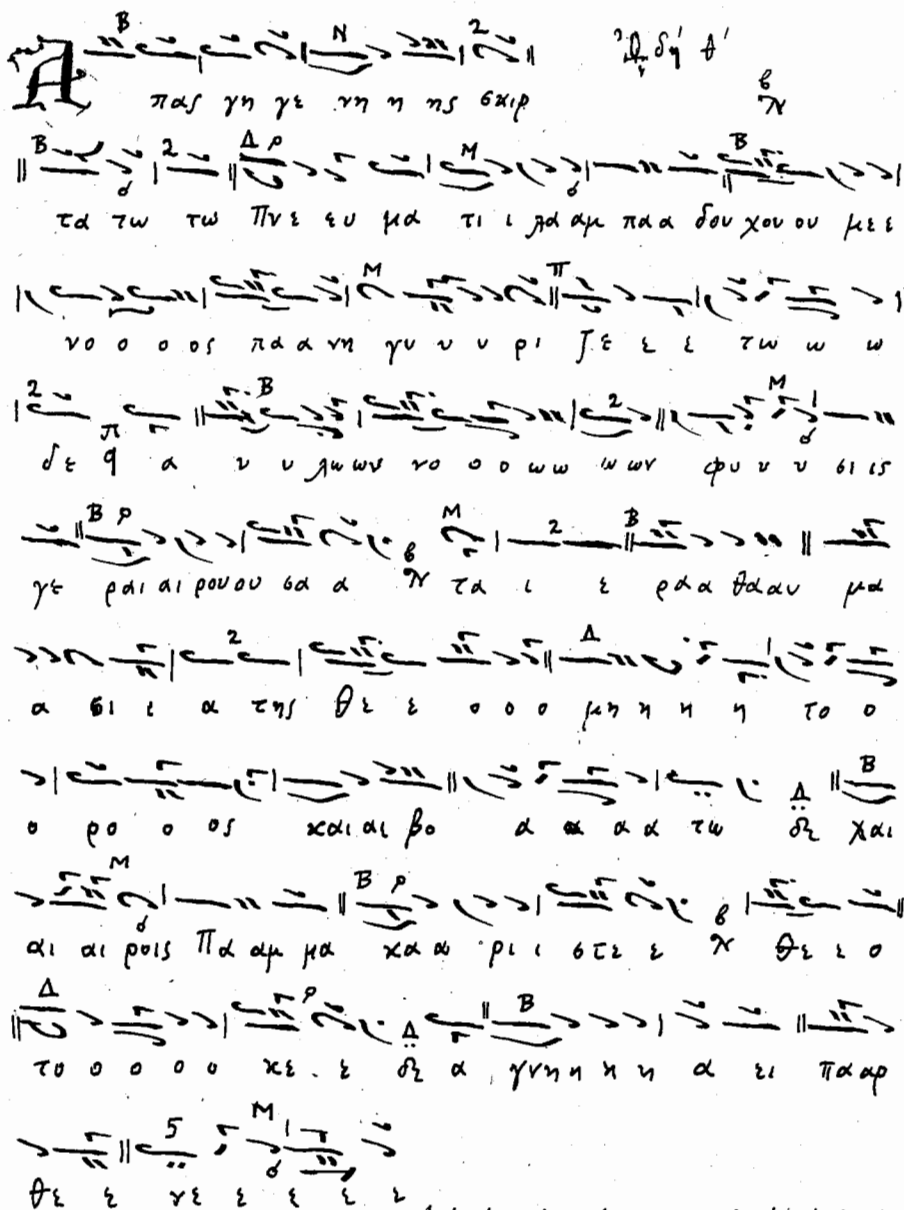 Ὠδή θ'
Α πας γη γε νη η ης σκιρ
τα τω τω Πνε ευ μα τι ι λα αμ παα δου χουου μεε
νο ο ο ος παα νη γυ υ υ ρι ζε ε ε τω ω ω
δε α υ υ λωων νο ο ο ωω ωων φυ υ υ σιις
γε ραι αι ρουου σα α τα ι ε ραα θααυ μα
α σι ι α της θε ε ο ο ο μη η η η το ο
ο ρο ο ος και αι βο α α α α τω και
αι αι ροις Πα αμ μα καα ρι ι στε ε θε ε ο
το ο ο ο ο κε ε α γνη η η η α ει πααρ
θε ε νε ε ε ε ε